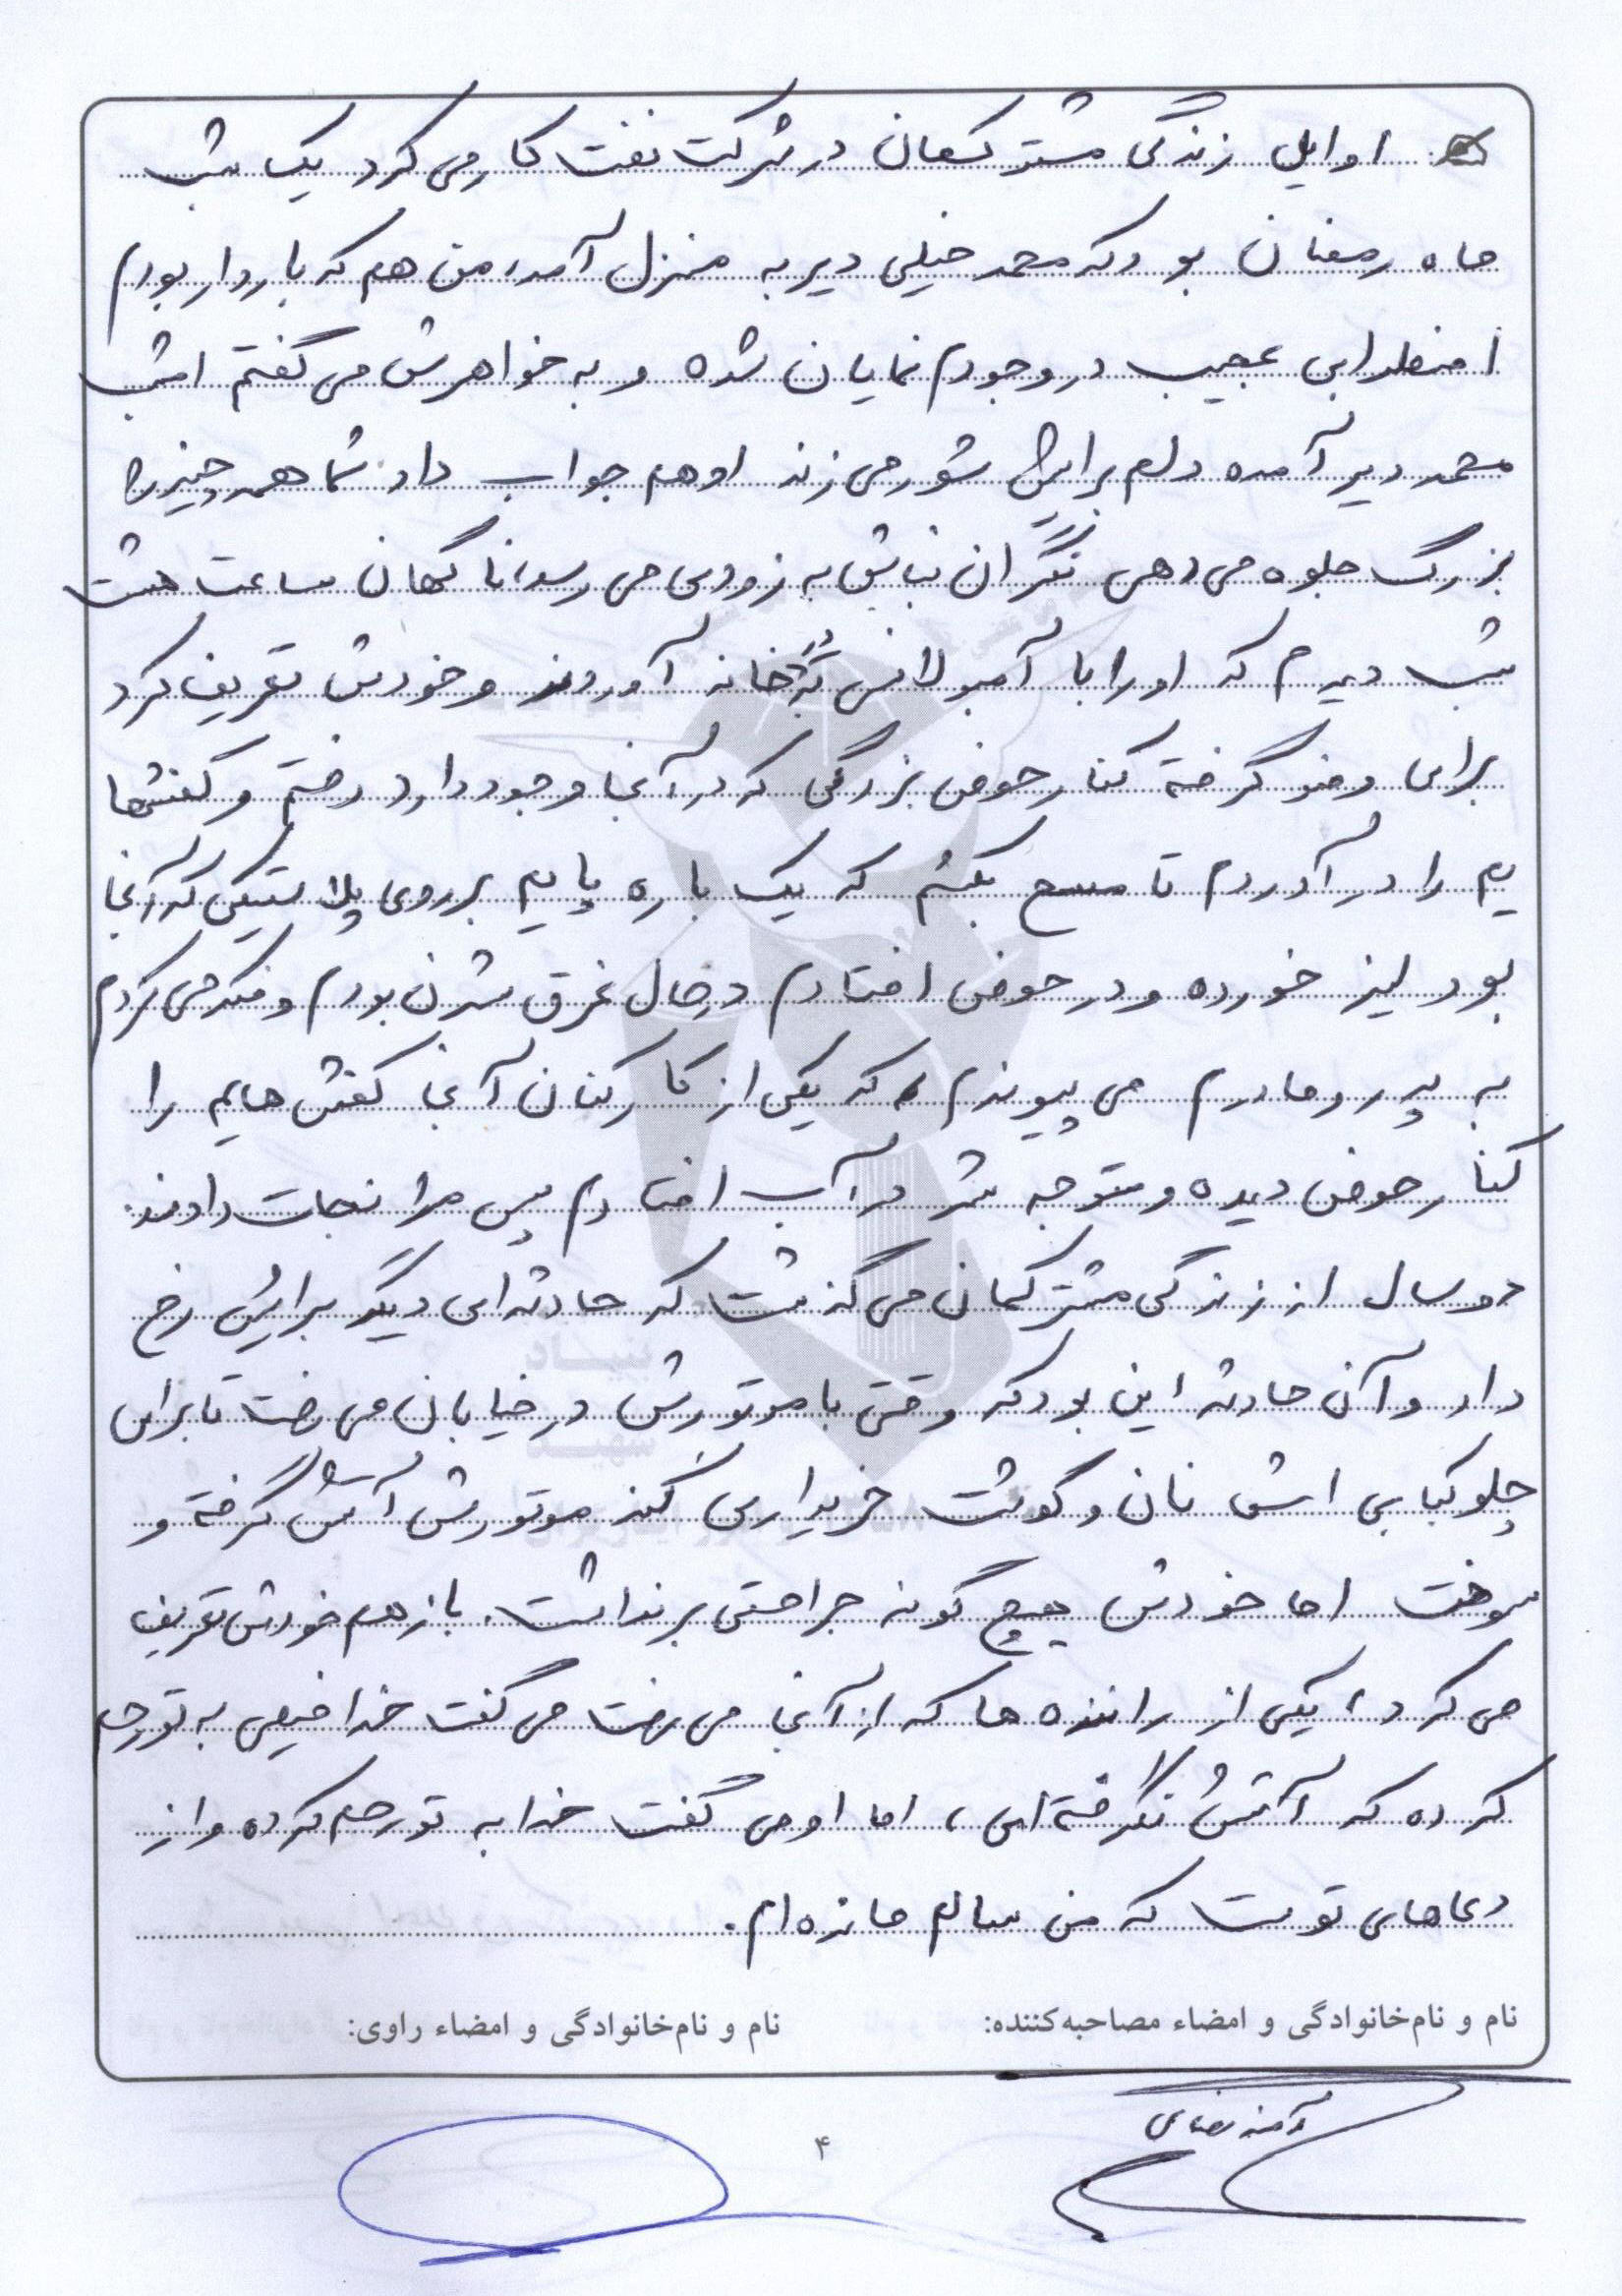 اوایل زندگی مشترکمان در شرکت نفت کار می کرد یک شب
ماه رمضان بود که محمد خیلی دیر به منزل آمد، من هم که باردار بودم
اضطرابی عجیب در وجودم نمایان شده و به خواهرش می گفتم امشب
محمد دیر آمده دلم برایش شور می زند او هم جواب داد شما همه چیز را
بزرگ جلوه می دهی نگران نباش به زودی می رسد ناگهان ساعت هشت
شب دیدم که او را با آمبولانس به خانه آوردند و خودش تعریف کرد
برای وضو گرفته کنار حوض بزرگی که در آنجا وجود دارد رفتم و کفشها
یم را در آوردم تا مسح بکشم که یک باره پایم بر روی پلاستیکی که آنجا
بود لیز خورده و در حوض افتادم در حال غرق شدن بودم و فکر می کردم
به پدر و مادرم می پیوندم که یکی از کارکنان آنجا کفش هایم را
کنار حوض دیده و متوجه شد در آب افتادم پس مرا نجات دادند.
دو سال از زندگی مشترکمان می گذشت که حادثه ای دیگر برایش رخ
داد و آن حادثه این بود که وقتی با موتورش در خیابان می رفت تا برای
چلوکبابی اش نان و گوشت خریداری کند موتورش آتش گرفته و
سوخت اما خودش هیچ گونه جراحتی برنداشت. باز هم خودش تعریف
می کرد، یکی از راننده ها که از آنجا می رفت می گفت خدا خیلی به تو رحم
کرده که آتش نگرفته ای، اما او می گفت خدا به تو رحم کرده و از
دعاهای توست که من سالم مانده ام.
نام و نام‌خانوادگی و امضاء مصاحبه‌کننده: نام و نام‌خانوادگی و امضاء راوی:
آمنه
۴